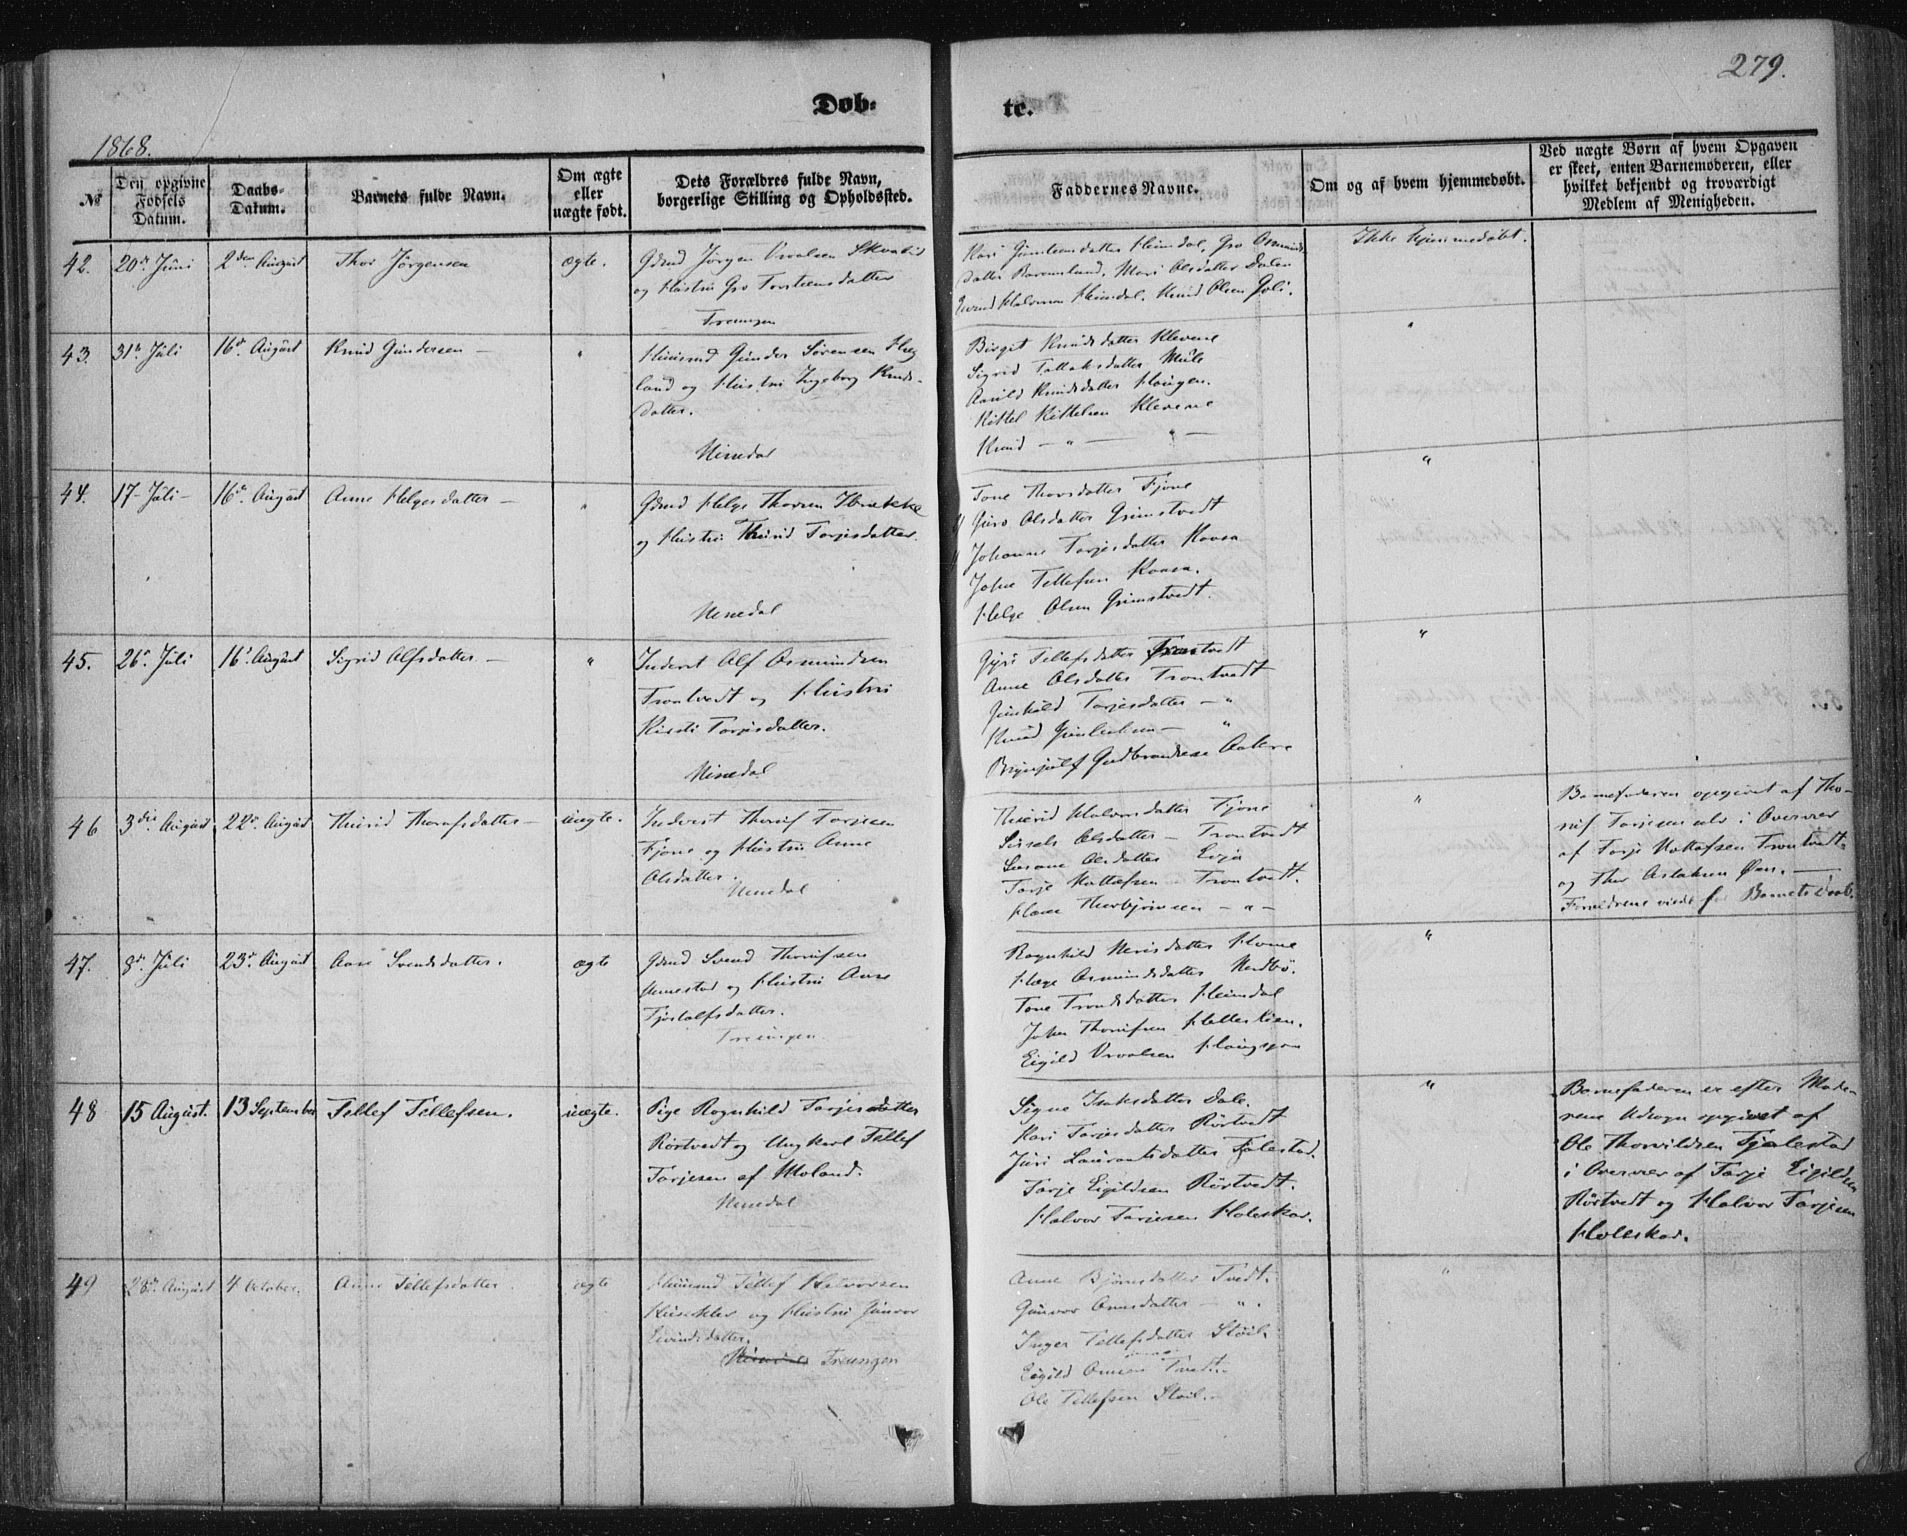 279.
Døb-
te.
1868.
№
Den opgivne Fødsels Datum.
Daabs-Datum.
Barnets fulde Navn.
Om ægte eller uægte født.
Dets Forældres fulde Navn, borgerlige Stilling og Opholdssted.
Faddernes Navne.
Om og af hvem hjemmedøbt.
Ved uægte Børn af hvem Opgaven er skeet, enten Barnemoderen, eller hvilket bekjendt og troværdigt Medlem af Menigheden.
42.
20de Juni
2den August
Thor Jørgensen
ægte.
Gdmd Jørgen
og Hustru Gro Torstensdatter
Treungen
Kari Gunleiksdatter Heimdal, Gro Osmunds
datter Baremland, Mari Olsdatter Dalen
Eivind Halvorsen Heimdal, Knud Olsen
Ikke hjemmedøbt.
43.
31te Juli
16de August
Knud Gundersen -
"
Huusmd Gunder Sørensen Heg
land og Hustru Ingeborg Knuds-
datter.
Nissedal
Birgit Knudsdatter Klevene
Sigrid Tallaksdatter Mule
Knudsdatter Haugen.
Kittel Kittelsen Klevene
Knud - " - " -
"
44.
17- Juli -
16de August
Anne Helgesdatter -
"
Gdmd Helge Thorsen
og Hustru Thurid Torjesdatter.
Nissedal
Tone Thorsdatter Fjone
Juro Olsdatter Grimstvedt
Johanne Torjesdatter Kaasa
John Tellefsen Kaasa.
Helge Olsen Grimstvedt.
"
45.
26de Juli
16de August
Sigrid Alfsdatter -
"
Inderst Alf Osmundsen
Trontvedt og Hustru
Kirsti Torjesdatter.
Nissedal
Tellefsdatter
Anne Olsdatter Trontvedt
Gunhild Torjesdatter - "
Knud Gunleiksen - "
Brynjulf Gudbrandsen
"
46
3die August
22de August
Thurid Thorufsdatter -
uægte.
Inderst Thoruf Torjesen
Fjone og Hustru Anne
Olsdatter.
Nissedal
Thurid Halvorsdatter Fjone
Sissel Olsdatter - Trontvedt
Susane Olsdatter
Torje Nottofsen - Trontvedt.
Thorbjørnsen - " -
"
Barnefaderen opgivet af Tho-
ruf Torjesen selv i Overvær
af Torje Nottofsen Trontvedt
og Thor Aslaksen
Forældrene viede før Barnets Daab.
47.
8de Juli
23de August
Aase Svendsdatter.
ægte
Gdmd Svend Thorufsen
og Hustru Anne
datter.
Treungen
Ragnhild
Osmundsdatter
Tone Trondsdatter Heimdal
John Thorufsen
Eigild
"
48
15 August.
13 September
Tellef Tellefsen.
uægte.
Pige Ragnhild Torjesdatter
Rørtvedt og Ungkarl Tellef
Torjesen af Moland.
Nissedal
Signe Isaksdatter Dale.
Kari Torjesdatter Rørtvedt
Juri Laurantsdatter Fjalestad.
Torje Eigildsen Rørtvedt.
Halvor Torjesen Holeskar.
"
Barnefaderen er efter Mode-
rens Udsagn opgivet af
Ole Thorvildsen Fjalestad
i Overvær af Torje Eigildsen
Rørtvedt og Halvor Torjesen
Holeskar.
49
28de August
4 October.
Anne Tellefsdatter
ægte
Huusmd Tellef Halvorsen
og Hustru Gunvor
Eivindsdatter.
Treungen
Anne Bjørnsdatter Tvedt.
Gunvor Onundsdatter - " .
Inger Tellefsdatter Støil.
Eigild Tvedt.
Ole Tellefsen Støil.
"